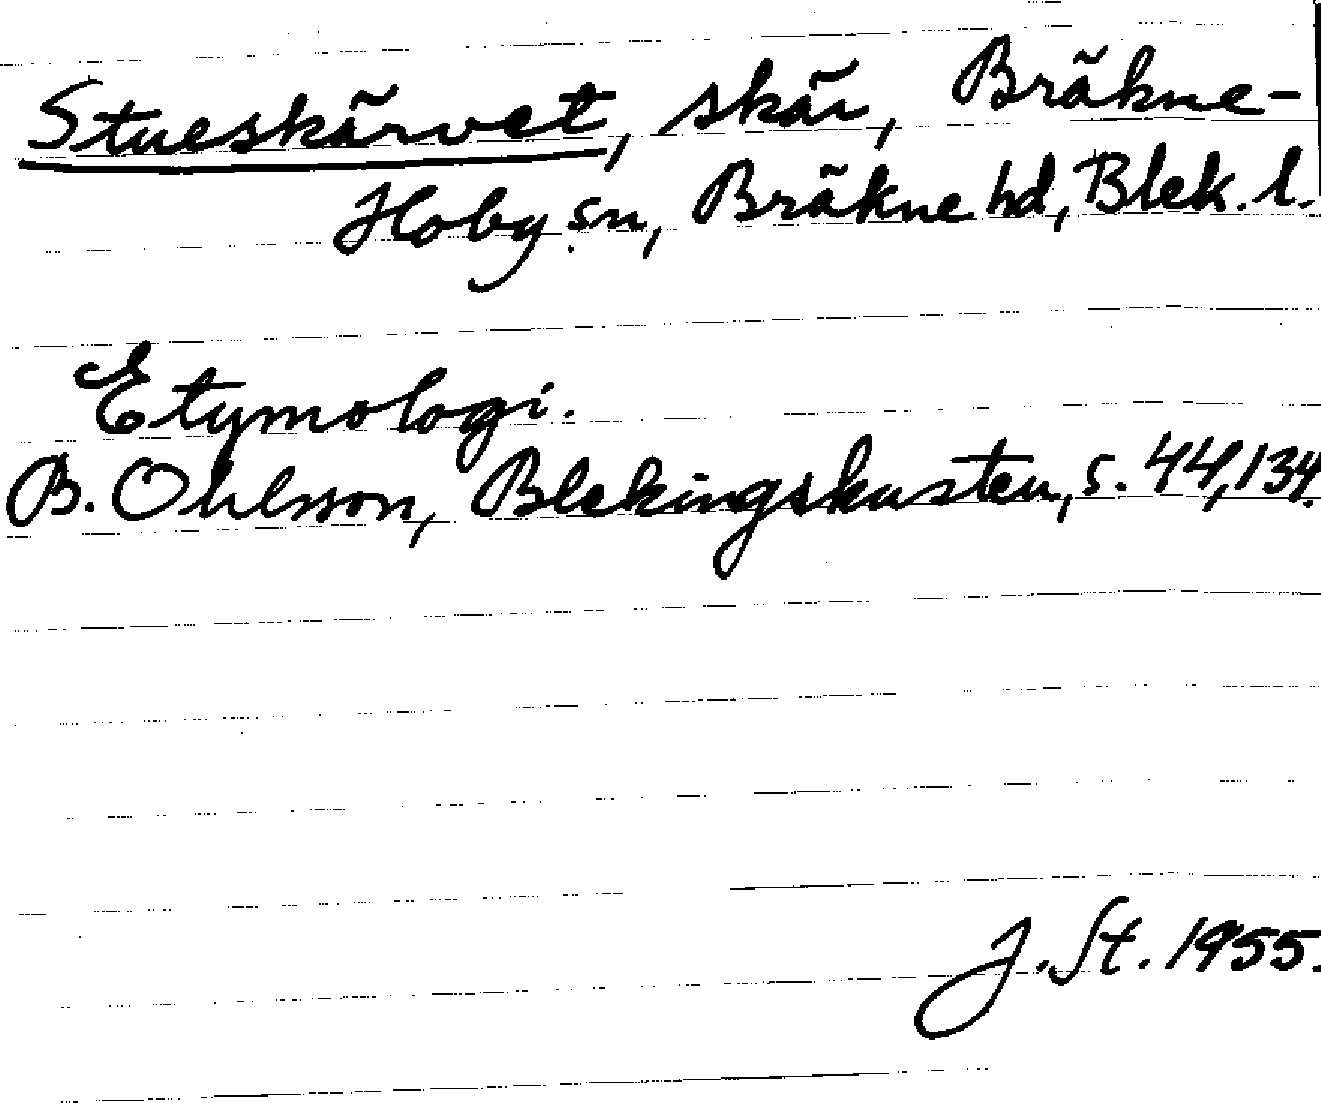 Stueskärvet, skär, Bräkne-
Hoby sn, Bräkne hd, Blek. l.
Etymologi.
B. Ohlsson, Blekingskusten, s. 44, 134.
J. St. 1955.